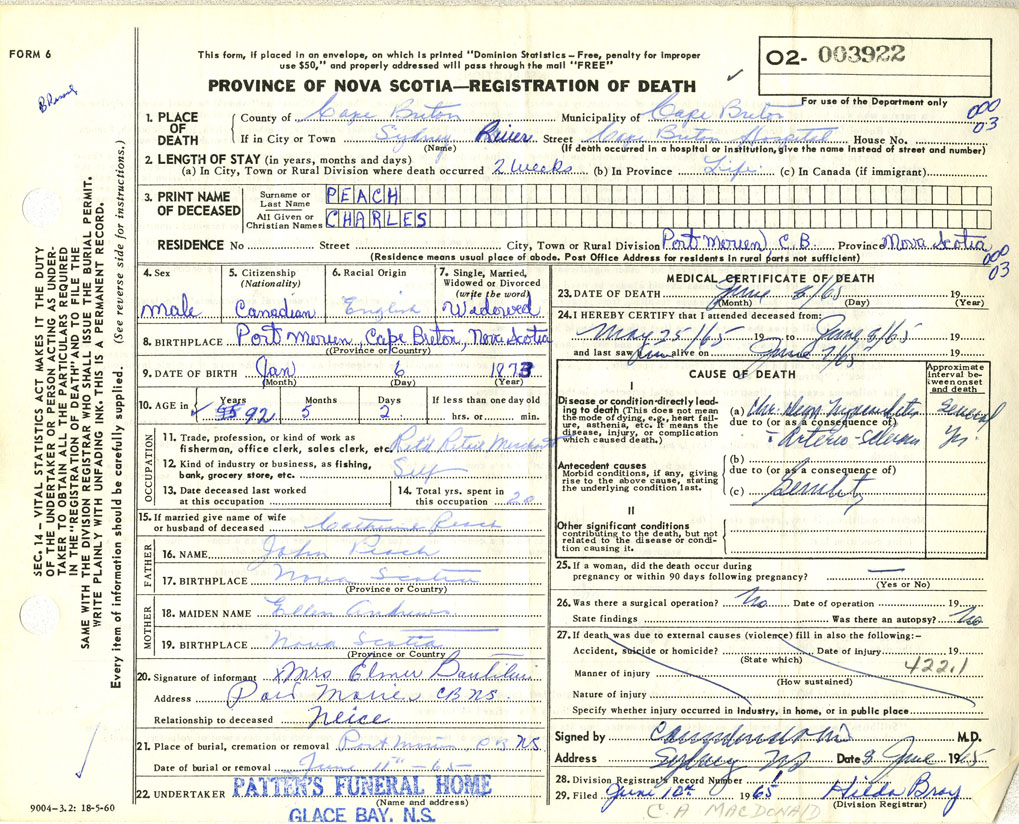 FORM 6
This form, if placed in an envelope, on which is printed "Dominion Statistics – Free, penalty for improper
use $50," and properly addressed will pass through the mail "FREE"
O2- 003922
PROVINCE OF NOVA SCOTIA—REGISTRATION OF DEATH
For use of the Department only
000
03
1. PLACE OF DEATH
County of Cape Breton Municipality of Cape Breton
If in City or Town Sydney River Street Cape Breton Hospital House No.
(Name) (If death occurred in a hospital or institution, give the name instead of street and number)
2. LENGTH OF STAY (in years, months and days)
(a) In City, Town or Rural Division where death occurred 2 weeks (b) In Province Life (c) In Canada (if immigrant)
3. PRINT NAME OF DECEASED
Surname or Last Name PEACH
All Given or Christian Names CHARLES
RESIDENCE No Street City, Town or Rural Division Port Morien C.B. Province Nova Scotia
(Residence means usual place of abode. Post Office Address for residents in rural parts not sufficient)
000
03
SEC. 14 – VITAL STATISTICS ACT MAKES IT THE DUTY
OF THE UNDERTAKER OR PERSON ACTING AS UNDER-
TAKER TO OBTAIN ALL THE PARTICULARS REQUIRED
IN THE "REGISTRATION OF DEATH" AND TO FILE THE
SAME WITH THE DIVISION REGISTRAR WHO SHALL ISSUE THE BURIAL PERMIT.
WRITE PLAINLY WITH UNFADING INK. THIS IS A PERMANENT RECORD.
Every item of information should be carefully supplied. (See reverse side for instructions.)
4. Sex
male
5. Citizenship (Nationality)
Canadian
6. Racial Origin
English
7. Single, Married, Widowed or Divorced (write the word)
Widowed
8. BIRTHPLACE Port Morien, Cape Breton, Nova Scotia
(Province or Country)
9. DATE OF BIRTH Jan 6 1873
(Month) (Day) (Year)
10. AGE in Years Months Days If less than one day old
92 5 2 hrs. or min.
OCCUPATION
11. Trade, profession, or kind of work as
fisherman, office clerk, sales clerk, etc. Retd Retail Merchant
12. Kind of industry or business, as fishing,
bank, grocery store, etc. Self
13. Date deceased last worked
at this occupation
14. Total yrs. spent in
this occupation 20
15. If married give name of wife
or husband of deceased Catherine Peach
FATHER
16. NAME John Peach
17. BIRTHPLACE Nova Scotia
(Province or Country)
MOTHER
18. MAIDEN NAME Ellen Andrews
19. BIRTHPLACE Nova Scotia
(Province or Country)
20. Signature of informant Mrs Elmer
Address Port Morien CB NS.
Relationship to deceased Neice
21. Place of burial, cremation or removal Port Morien CB NS
Date of burial or removal June 11th - 65
22. UNDERTAKER PATTEN'S FUNERAL HOME
(Name and address)
GLACE BAY, N.S.
9004-3.2: 18-5-60
MEDICAL CERTIFICATE OF DEATH
23. DATE OF DEATH June 8/65 19
(Month) (Day) (Year)
24. I HEREBY CERTIFY that I attended deceased from:
May 25/65 19 to June 8/65 19
and last saw him alive on June 7/65 19
CAUSE OF DEATH
Approximate interval between onset and death
I
Disease or condition directly lead-
ing to death (This does not mean
the mode of dying, e.g., heart fail-
ure, asthenia, etc. It means the
disease, injury, or complication
which caused death.)
(a)
due to (or as a consequence of)
Several
Arterio-
Yrs.
Antecedent causes
Morbid conditions, if any, giving
rise to the above cause, stating
the underlying condition last.
(b)
due to (or as a consequence of)
(c) Senility
II
Other significant conditions
contributing to the death, but not
related to the disease or condi-
tion causing it.
25. If a woman, did the death occur during
pregnancy or within 90 days following pregnancy? —
(Yes or No)
26. Was there a surgical operation? No Date of operation 19
State findings Was there an autopsy? No
27. If death was due to external causes (violence) fill in also the following:–
Accident, suicide or homicide? Date of injury 19
(State which)
422.1
Manner of injury
(How sustained)
Nature of injury
Specify whether injury occurred in industry, in home, or in public place
Signed by M.D.
Address Sydney NS Date 8 June 1965
28. Division Registrar's Record Number
29. Filed June 10th 1965 Hilda Bray
(Division Registrar)
C. A MACDONALD